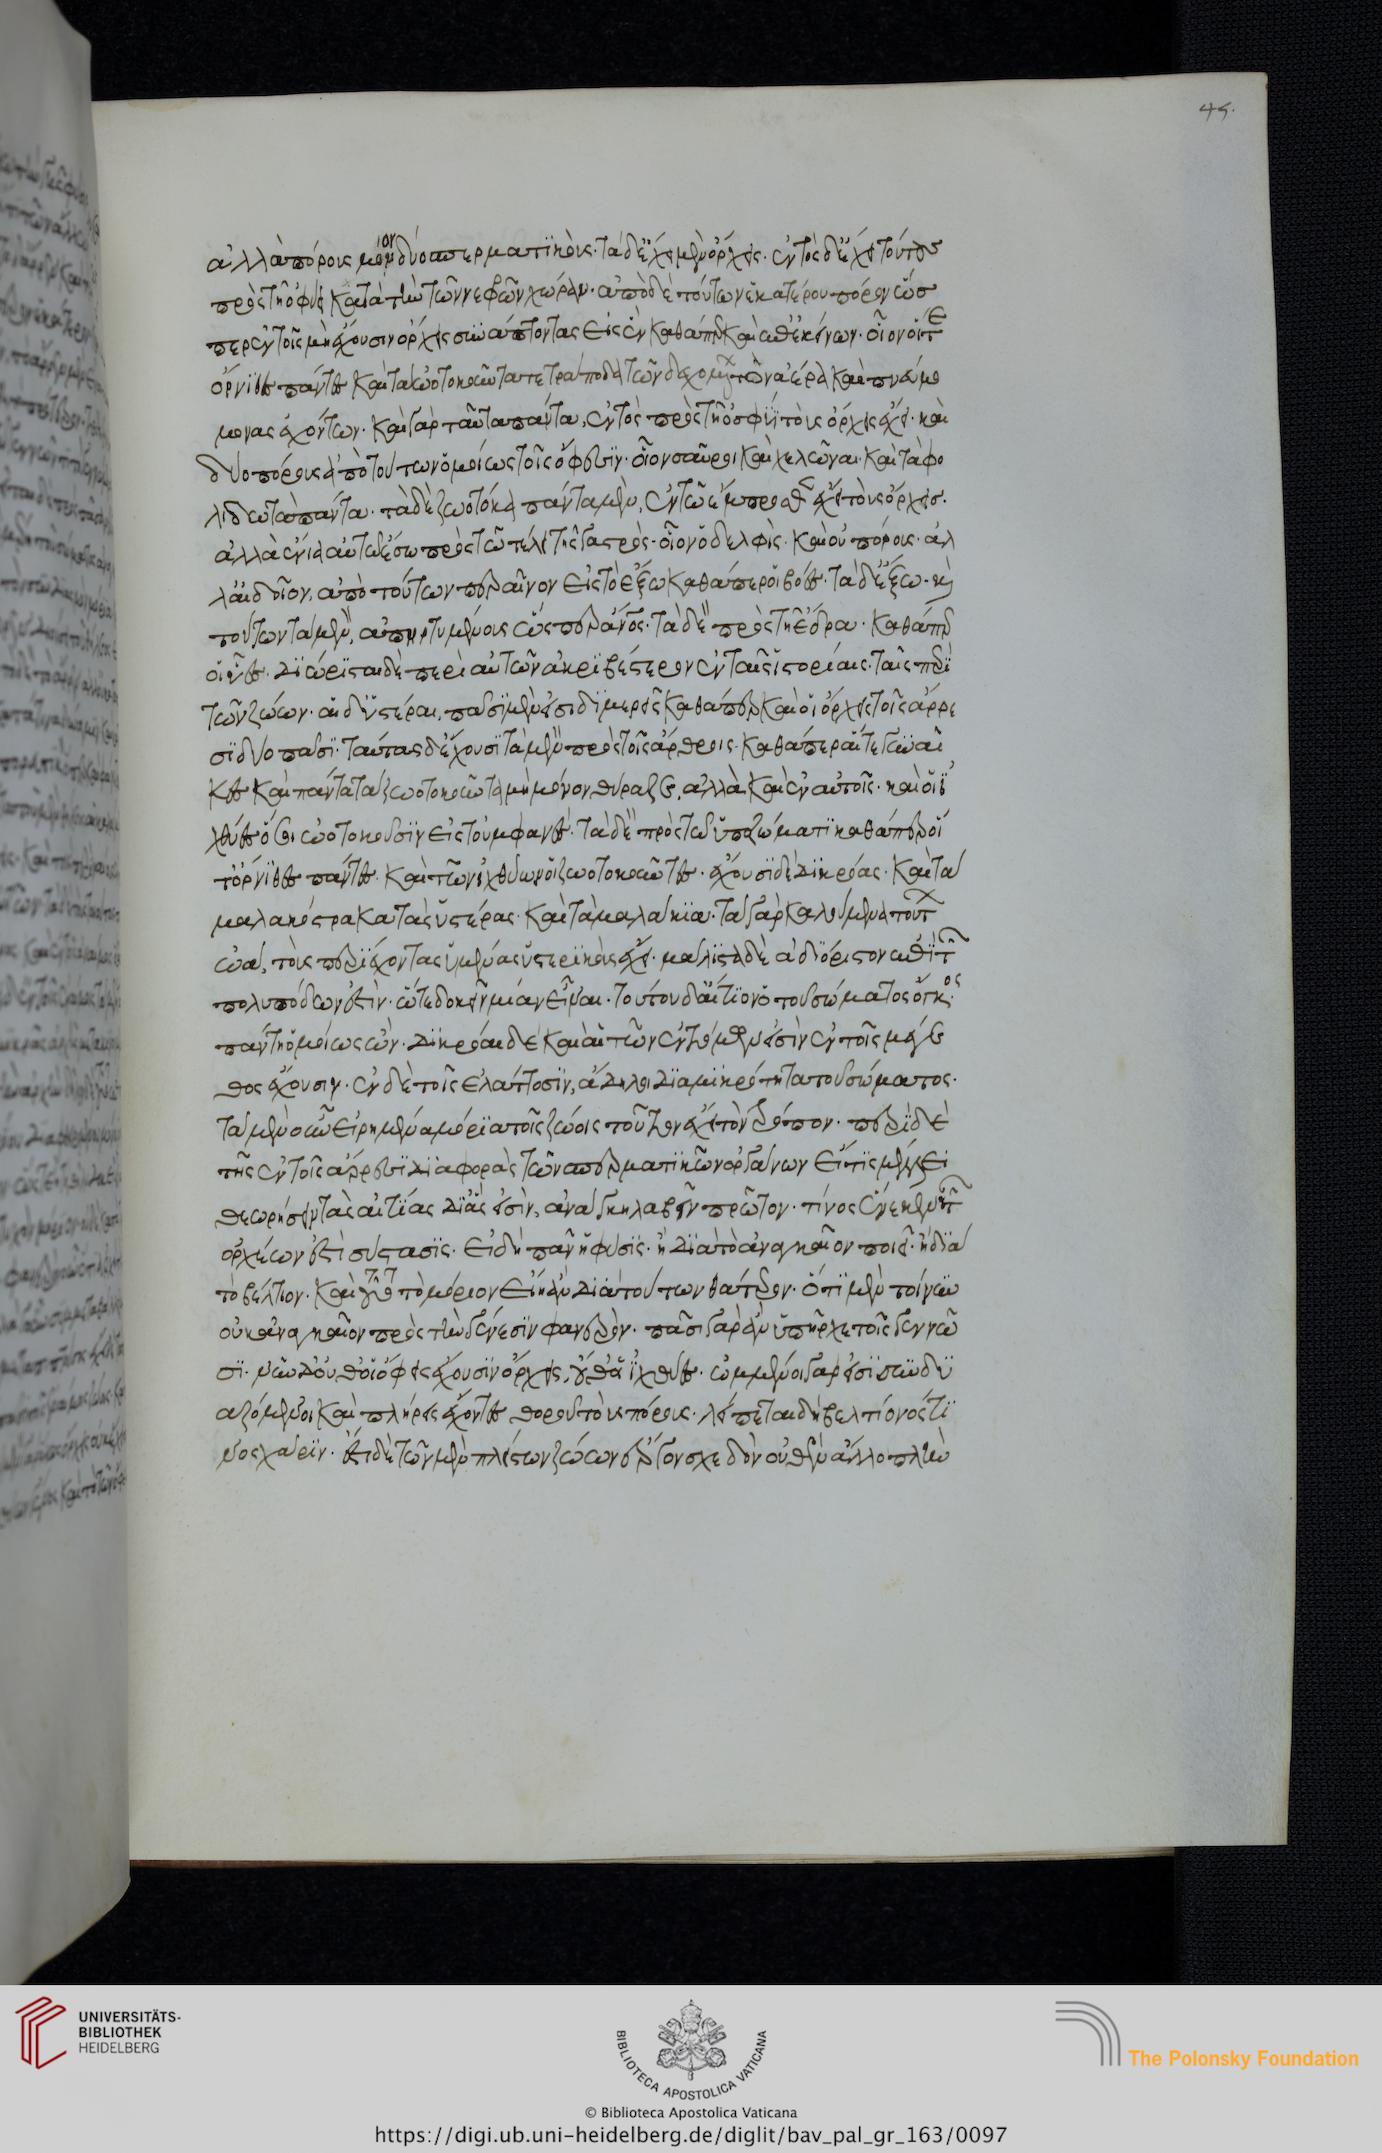 ἀλλὰ πόρους μόνον δύο σπερματϊκοὺς· τὰ δὲ ἔχει μὲν ὄρχεις. ἐντὸς δὲ ἔχει τούτους
πρὸς τῇ ὀφύϊ κατὰ τὴν τῶν νεφρῶν χώραν· ἀπὸ δὲ τούτων ἑκατέρου πόρον ὥσ
περ ἐν τοῖς μὴ ἔχουσιν ὄρχεις συνάπτοντας εἰς ἓν καθάπερ καὶ ἐπ' ἐκείνων· οἷον οἵ τε
ὄρνιθες πάντες καὶ τὰ ὠοτοκοῦντα τετράποδα τῶν δεχομένων τὸν ἀέρα καὶ πνεύμο
μονας ἐχόντων. καὶ γὰρ ταῦτα πάντα, ἐντὸς πρὸς τῇ ὀσφύϊ τοὺς ὄρχεις ἔχει· καὶ
δύο πόρους ἀπὸ τούτων ὁμοίως τοῖς ὄφεσϊν· οἷον σαῦροι καὶ χελῶναι· καὶ τὰ φο
λιδωτὰ πάντα. τὰ δὲ ζωοτόκα πάντα μὲν, ἐν τῷ ἔμπροσθεν ἔχει τοὺς ὄρχεις.
ἀλλὰ ἔνια αὐτῶν ἔσω πρὸς τῷ τέλει τῆς γαστρὸς· οἷον ὁ δελφὶς· καὶ οὐ πόρους· ἀλ
λ' αἰδοῖον, ἀπὸ τούτων περαῖνον εἰς τὸ ἔξω καθάπερ οἱ βόες· τὰ δὲ ἔξω· καὶ
τούτων τὰ μὲν, ἀπηρτημένους ὥσπερ ἄνθρωπος· τὰ δὲ πρὸς τῇ ἕδρα· καθάπερ
οἱ ὕες. Διώρϊσται δὲ περὶ αὐτῶν ἀκριβέστερον ἐν ταῖς ἱστορίαις· ταῖς περὶ
τῶν ζώων. αἱ δὲ ὑστέραι, πᾶσϊ μέν εἰσι διμερεῖς καθάπερ καὶ οἱ ὄρχεις τοῖς ἄρρε
σϊ δύο πᾶσϊ. ταύτας δ' ἔχουσϊ τὰ μὲν πρὸς τοῖς ἄρθροις· καθάπερ αἵτε γυναῖ
κες καὶ πάντα τὰ ζωοτοκοῦντα μὴ μόνον θύραζε, ἀλλὰ καὶ ἐν αὑτοῖς· καὶ οἱ ἰ
χθύες ὅσοι ὠοτοκοῦσϊν εἰς τοὐμφανές· τὰ δὲ πρὸς τῷ ὑποζώματι καθάπερ οἵ
τ' ὄρνϊθες πάντες. καὶ τῶν ἰχθύων οἱ ζωοτοκοῦντες. ἔχουσϊ δὲ δικρόας. καὶ τὰ
μαλακόστρακα τὰς ὑστέρας. καὶ τὰ μαλάκια· τὰ γὰρ καλούμενα τούτων
ὠὰ, τοὺς περιέχοντας ὑμένας ὑστερικοὺς ἔχει. μάλιστα δὲ ἀδιόριστον ἐπὶ τῶν
πολυπόδων ἐστὶν. ὥστε δοκεῖν μίαν εἶναι. τούτου δ' αἴτιον ὁ τοῦ σώματος ὄγκος
πάντῃ ὁμοίως ὢν. δικρόαι δὲ καὶ αἱ τῶν ἐντόμων εἰσὶν ἐν τοῖς μέγε
θος ἔχουσιν. ἐν δὲ τοῖς ἐλάττοσϊν, ἄδηλοι διὰ μικρότητα τοῦ σώματος.
τὰ μὲν οὖν εἰρημένα μόρια τοῖς ζώοις τοῦτον ἔχει τὸν τρόπον. περὶ δὲ
τῆς ἐν τοῖς ἄρρεσϊ διαφορᾶς τῶν σπερματικῶν ὀργάνων εἴ τις μέλλει
θεωρήσειν τὰς αἰτίας δι' ἅς εἰσὶν, ἀνάγκη λαβεῖν πρῶτον. τίνος ἕνεκεν ἡ τῶν
ὄρχεων ἐστὶ σύστασϊς. εἰ δὴ πᾶν ἡ φύσϊς. ἢ διὰ τὸ ἀναγκαῖον ποιεῖ. ἢ διὰ
τὸ βέλτιον. καὶ τοῦτο τὸ μόριον εἴη ἂν διὰ τούτων θάτερον. ὅτι μὲν τοίνυν
οὐκ ἀναγκαῖον πρὸς τὴν γένεσιν φανερὸν. πᾶσι γὰρ ἂν ὑπῆρχε τοῖς γεννῶ
σι. νῦν δ' οὔθ' οἱ ὄφεις ἔχουσϊν ὄρχεις, οὔθ' οἱ ἰχθύες. ὠμμένοι γάρ εἰσϊ συνδυ
αζόμενοι καὶ πλήρεις ἔχοντες θοροῦ τοὺς πόρους. λείπεται δὴ βελτίονός τι
νος χάριν. ἔστι δὲ τῶν μὲν πλείστων ζώων ἔργον σχεδὸν οὐθὲν ἄλλο πλὴν
UNIVERSITÄTS-
BIBLIOTHEK
HEIDELBERG
BIBLIOTECA APOSTOLICA VATICANA
The Polonsky Foundation
© Biblioteca Apostolica Vaticana
https://digi.ub.uni-heidelberg.de/diglit/bav_pal_gr_163/0097